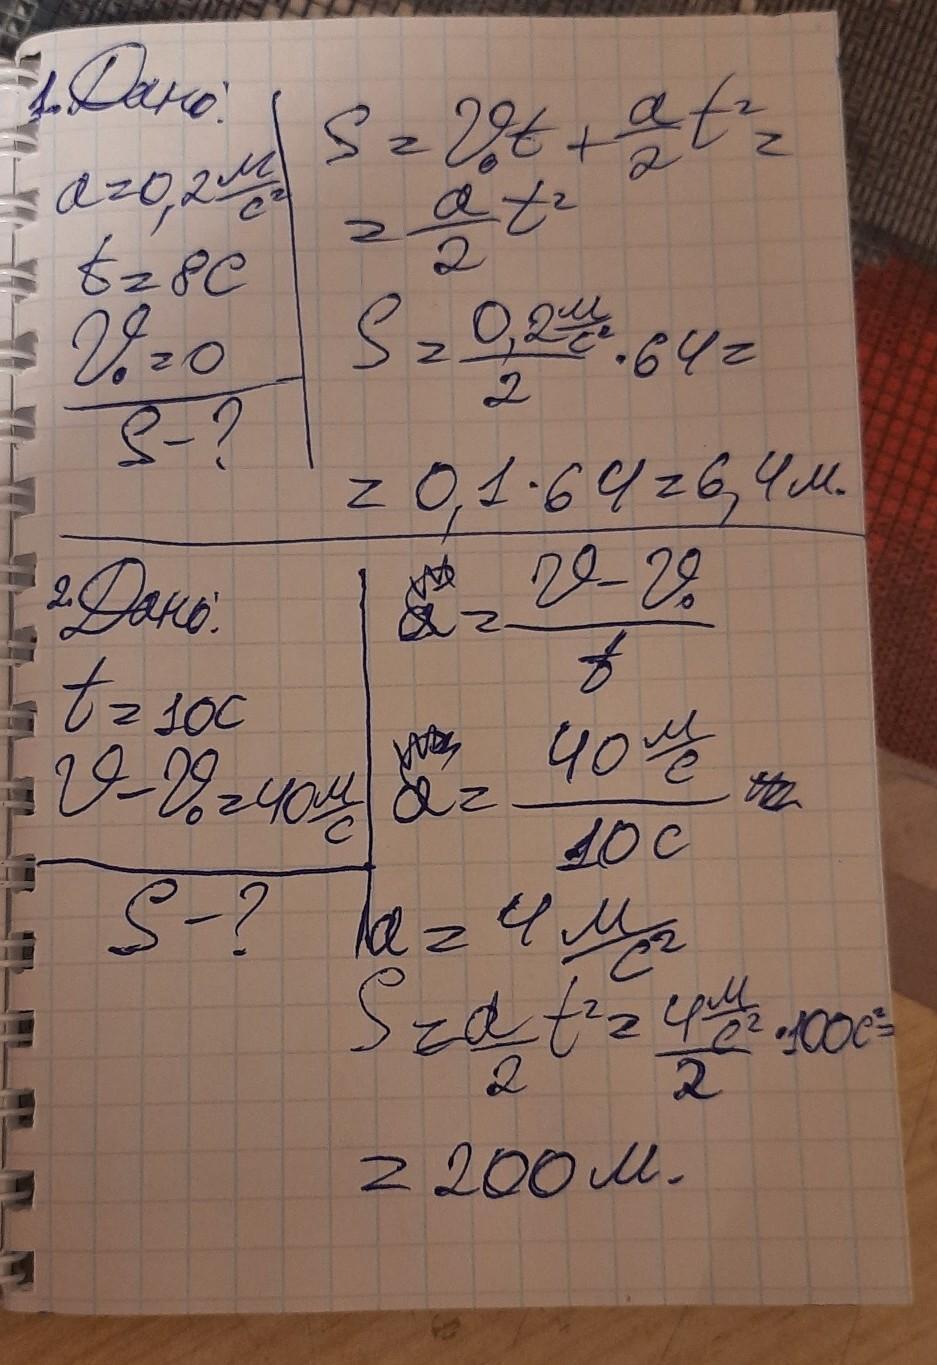 1. Дано:
a=0,2 м/с²
t=8с
V₀=0
S-?
S = V₀t + a/2 t² =
= a/2 t²
S = 0,2 м/с² / 2 · 64 =
= 0,1 · 64 = 6,4 м.
2. Дано:
t=10с
V-V₀=40 м/с
S-?
a = V-V₀ / t
a = 40 м/с / 10с
a = 4 м/с²
S = a/2 t² = 4 м/с² / 2 · 100с² =
= 200 м.